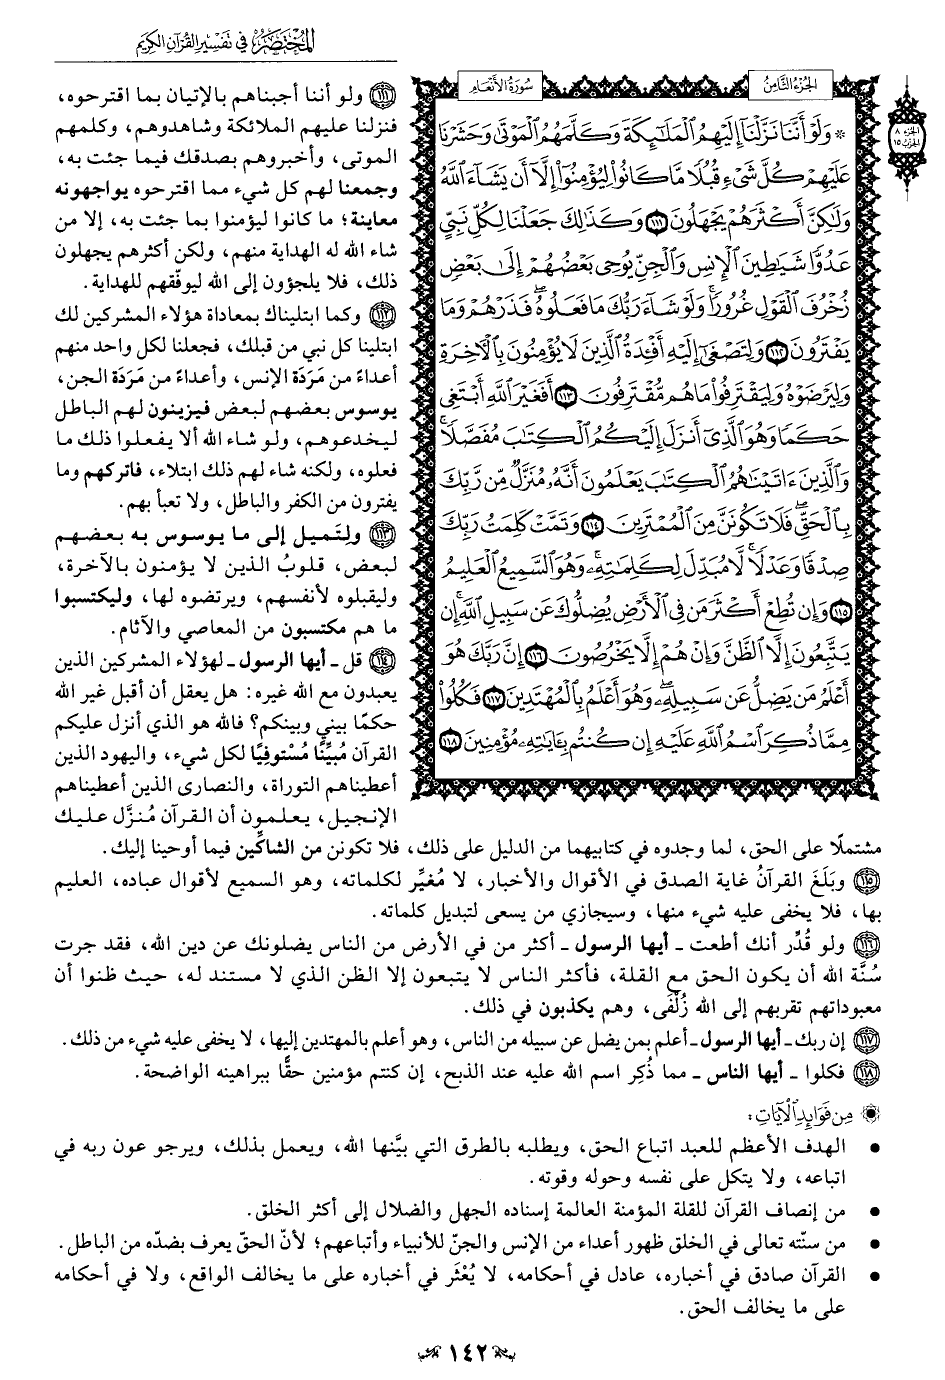 المُخْتَصَرُ في تَفْسِيرِ القُرْآنِ الكَرِيمِ
الجُزْءُ الثَّامِنُ
سُورَةُ الأَنْعَامِ
الجزء ٨
الحزب ١٥
۞ وَلَوۡ أَنَّنَا نَزَّلۡنَآ إِلَيۡهِمُ ٱلۡمَلَٰٓئِكَةَ وَكَلَّمَهُمُ ٱلۡمَوۡتَىٰ وَحَشَرۡنَا
عَلَيۡهِمۡ كُلَّ شَيۡءٖ قُبُلٗا مَّا كَانُواْ لِيُؤۡمِنُوٓاْ إِلَّآ أَن يَشَآءَ ٱللَّهُ
وَلَٰكِنَّ أَكۡثَرَهُمۡ يَجۡهَلُونَ ١١١ وَكَذَٰلِكَ جَعَلۡنَا لِكُلِّ نَبِيٍّ
عَدُوّٗا شَيَٰطِينَ ٱلۡإِنسِ وَٱلۡجِنِّ يُوحِي بَعۡضُهُمۡ إِلَىٰ بَعۡضٖ
زُخۡرُفَ ٱلۡقَوۡلِ غُرُورٗاۚ وَلَوۡ شَآءَ رَبُّكَ مَا فَعَلُوهُۖ فَذَرۡهُمۡ وَمَا
يَفۡتَرُونَ ١١٢ وَلِتَصۡغَىٰٓ إِلَيۡهِ أَفۡـِٔدَةُ ٱلَّذِينَ لَا يُؤۡمِنُونَ بِٱلۡأٓخِرَةِ
وَلِيَرۡضَوۡهُ وَلِيَقۡتَرِفُواْ مَا هُم مُّقۡتَرِفُونَ ١١٣ أَفَغَيۡرَ ٱللَّهِ أَبۡتَغِي
حَكَمٗا وَهُوَ ٱلَّذِيٓ أَنزَلَ إِلَيۡكُمُ ٱلۡكِتَٰبَ مُفَصَّلٗاۚ
وَٱلَّذِينَ ءَاتَيۡنَٰهُمُ ٱلۡكِتَٰبَ يَعۡلَمُونَ أَنَّهُۥ مُنَزَّلٞ مِّن رَّبِّكَ
بِٱلۡحَقِّۖ فَلَا تَكُونَنَّ مِنَ ٱلۡمُمۡتَرِينَ ١١٤ وَتَمَّتۡ كَلِمَتُ رَبِّكَ
صِدۡقٗا وَعَدۡلٗاۚ لَّا مُبَدِّلَ لِكَلِمَٰتِهِۦۚ وَهُوَ ٱلسَّمِيعُ ٱلۡعَلِيمُ
١١٥ وَإِن تُطِعۡ أَكۡثَرَ مَن فِي ٱلۡأَرۡضِ يُضِلُّوكَ عَن سَبِيلِ ٱللَّهِۚ إِن
يَتَّبِعُونَ إِلَّا ٱلظَّنَّ وَإِنۡ هُمۡ إِلَّا يَخۡرُصُونَ ١١٦ إِنَّ رَبَّكَ هُوَ
أَعۡلَمُ مَن يَضِلُّ عَن سَبِيلِهِۦۖ وَهُوَ أَعۡلَمُ بِٱلۡمُهۡتَدِينَ ١١٧ فَكُلُواْ
مِمَّا ذُكِرَ ٱسۡمُ ٱللَّهِ عَلَيۡهِ إِن كُنتُم بِـَٔايَٰتِهِۦ مُؤۡمِنِينَ ١١٨
١١١ ولو أننا أجبناهم بالإتيان بما اقترحوه،
فنزلنا عليهم الملائكة وشاهدوهم، وكلمهم
الموتى، وأخبروهم بصدقك فيما جئت به،
وجمعنا لهم كل شيء مما اقترحوه يواجهونه
معاينة؛ ما كانوا ليؤمنوا بما جئت به، إلا من
شاء الله له الهداية منهم، ولكن أكثرهم يجهلون
ذلك، فلا يلجؤون إلى الله ليوفّقهم للهداية.
١١٢ وكما ابتليناك بمعاداة هؤلاء المشركين لك
ابتلينا كل نبي من قبلك، فجعلنا لكل واحد منهم
أعداءً من مَرَدَة الإنس، وأعداءً من مَرَدَة الجن،
يوسوس بعضهم لبعض فيزينون لهم الباطل
ليخدعوهم، ولو شاء الله ألا يفعلوا ذلك ما
فعلوه، ولكنه شاء لهم ذلك ابتلاء، فاتركهم وما
يفترون من الكفر والباطل، ولا تعبأ بهم.
١١٣ ولتميل إلى ما يوسوس به بعضهم
لبعض، قلوبُ الذين لا يؤمنون بالآخرة،
وليقبلوه لأنفسهم، ويرتضوه لها، وليكتسبوا
ما هم مكتسبون من المعاصي والآثام.
١١٤ قل ـ أيها الرسول ـ لهؤلاء المشركين الذين
يعبدون مع الله غيره: هل يعقل أن أقبل غير الله
حكمًا بيني وبينكم؟ فالله هو الذي أنزل عليكم
القرآن مُبيِّنًا مُسْتوفِيًا لكل شيء، واليهود الذين
أعطيناهم التوراة، والنصارى الذين أعطيناهم
الإنجيل، يعلمون أن القرآن مُنزَّل عليك
مشتملًا على الحق، لما وجدوه في كتابيهما من الدليل على ذلك، فلا تكونن من الشاكِّين فيما أوحينا إليك.
١١٥ وبَلَغَ القرآنُ غاية الصدق في الأقوال والأخبار، لا مُغيِّر لكلماته، وهو السميع لأقوال عباده، العليم
بها، فلا يخفى عليه شيء منها، وسيجازي من يسعى لتبديل كلماته.
١١٦ ولو قُدِّر أنك أطعت ـ أيها الرسول ـ أكثر من في الأرض من الناس يضلونك عن دين الله، فقد جرت
سُنَّة الله أن يكون الحق مع القلة، فأكثر الناس لا يتبعون إلا الظن الذي لا مستند له، حيث ظنوا أن
معبوداتهم تقربهم إلى الله زُلْفَى، وهم يكذبون في ذلك.
١١٧ إن ربك ـ أيها الرسول ـ أعلم بمن يضل عن سبيله من الناس، وهو أعلم بالمهتدين إليها، لا يخفى عليه شيء من ذلك.
١١٨ فكلوا ـ أيها الناس ـ مما ذُكِر اسم الله عليه عند الذبح، إن كنتم مؤمنين حقًّا ببراهينه الواضحة.
مِن فَوَائِدِ الآيَاتِ:
• الهدف الأعظم للعبد اتباع الحق، ويطلبه بالطرق التي بيَّنها الله، ويعمل بذلك، ويرجو عون ربه في
اتباعه، ولا يتكل على نفسه وحوله وقوته.
• من إنصاف القرآن للقلة المؤمنة العالمة إسناده الجهل والضلال إلى أكثر الخلق.
• من سنّته تعالى في الخلق ظهور أعداء من الإنس والجنّ للأنبياء وأتباعهم؛ لأنّ الحقّ يعرف بضدّه من الباطل.
• القرآن صادق في أخباره، عادل في أحكامه، لا يُعْثَر في أخباره على ما يخالف الواقع، ولا في أحكامه
على ما يخالف الحق.
١٤٢